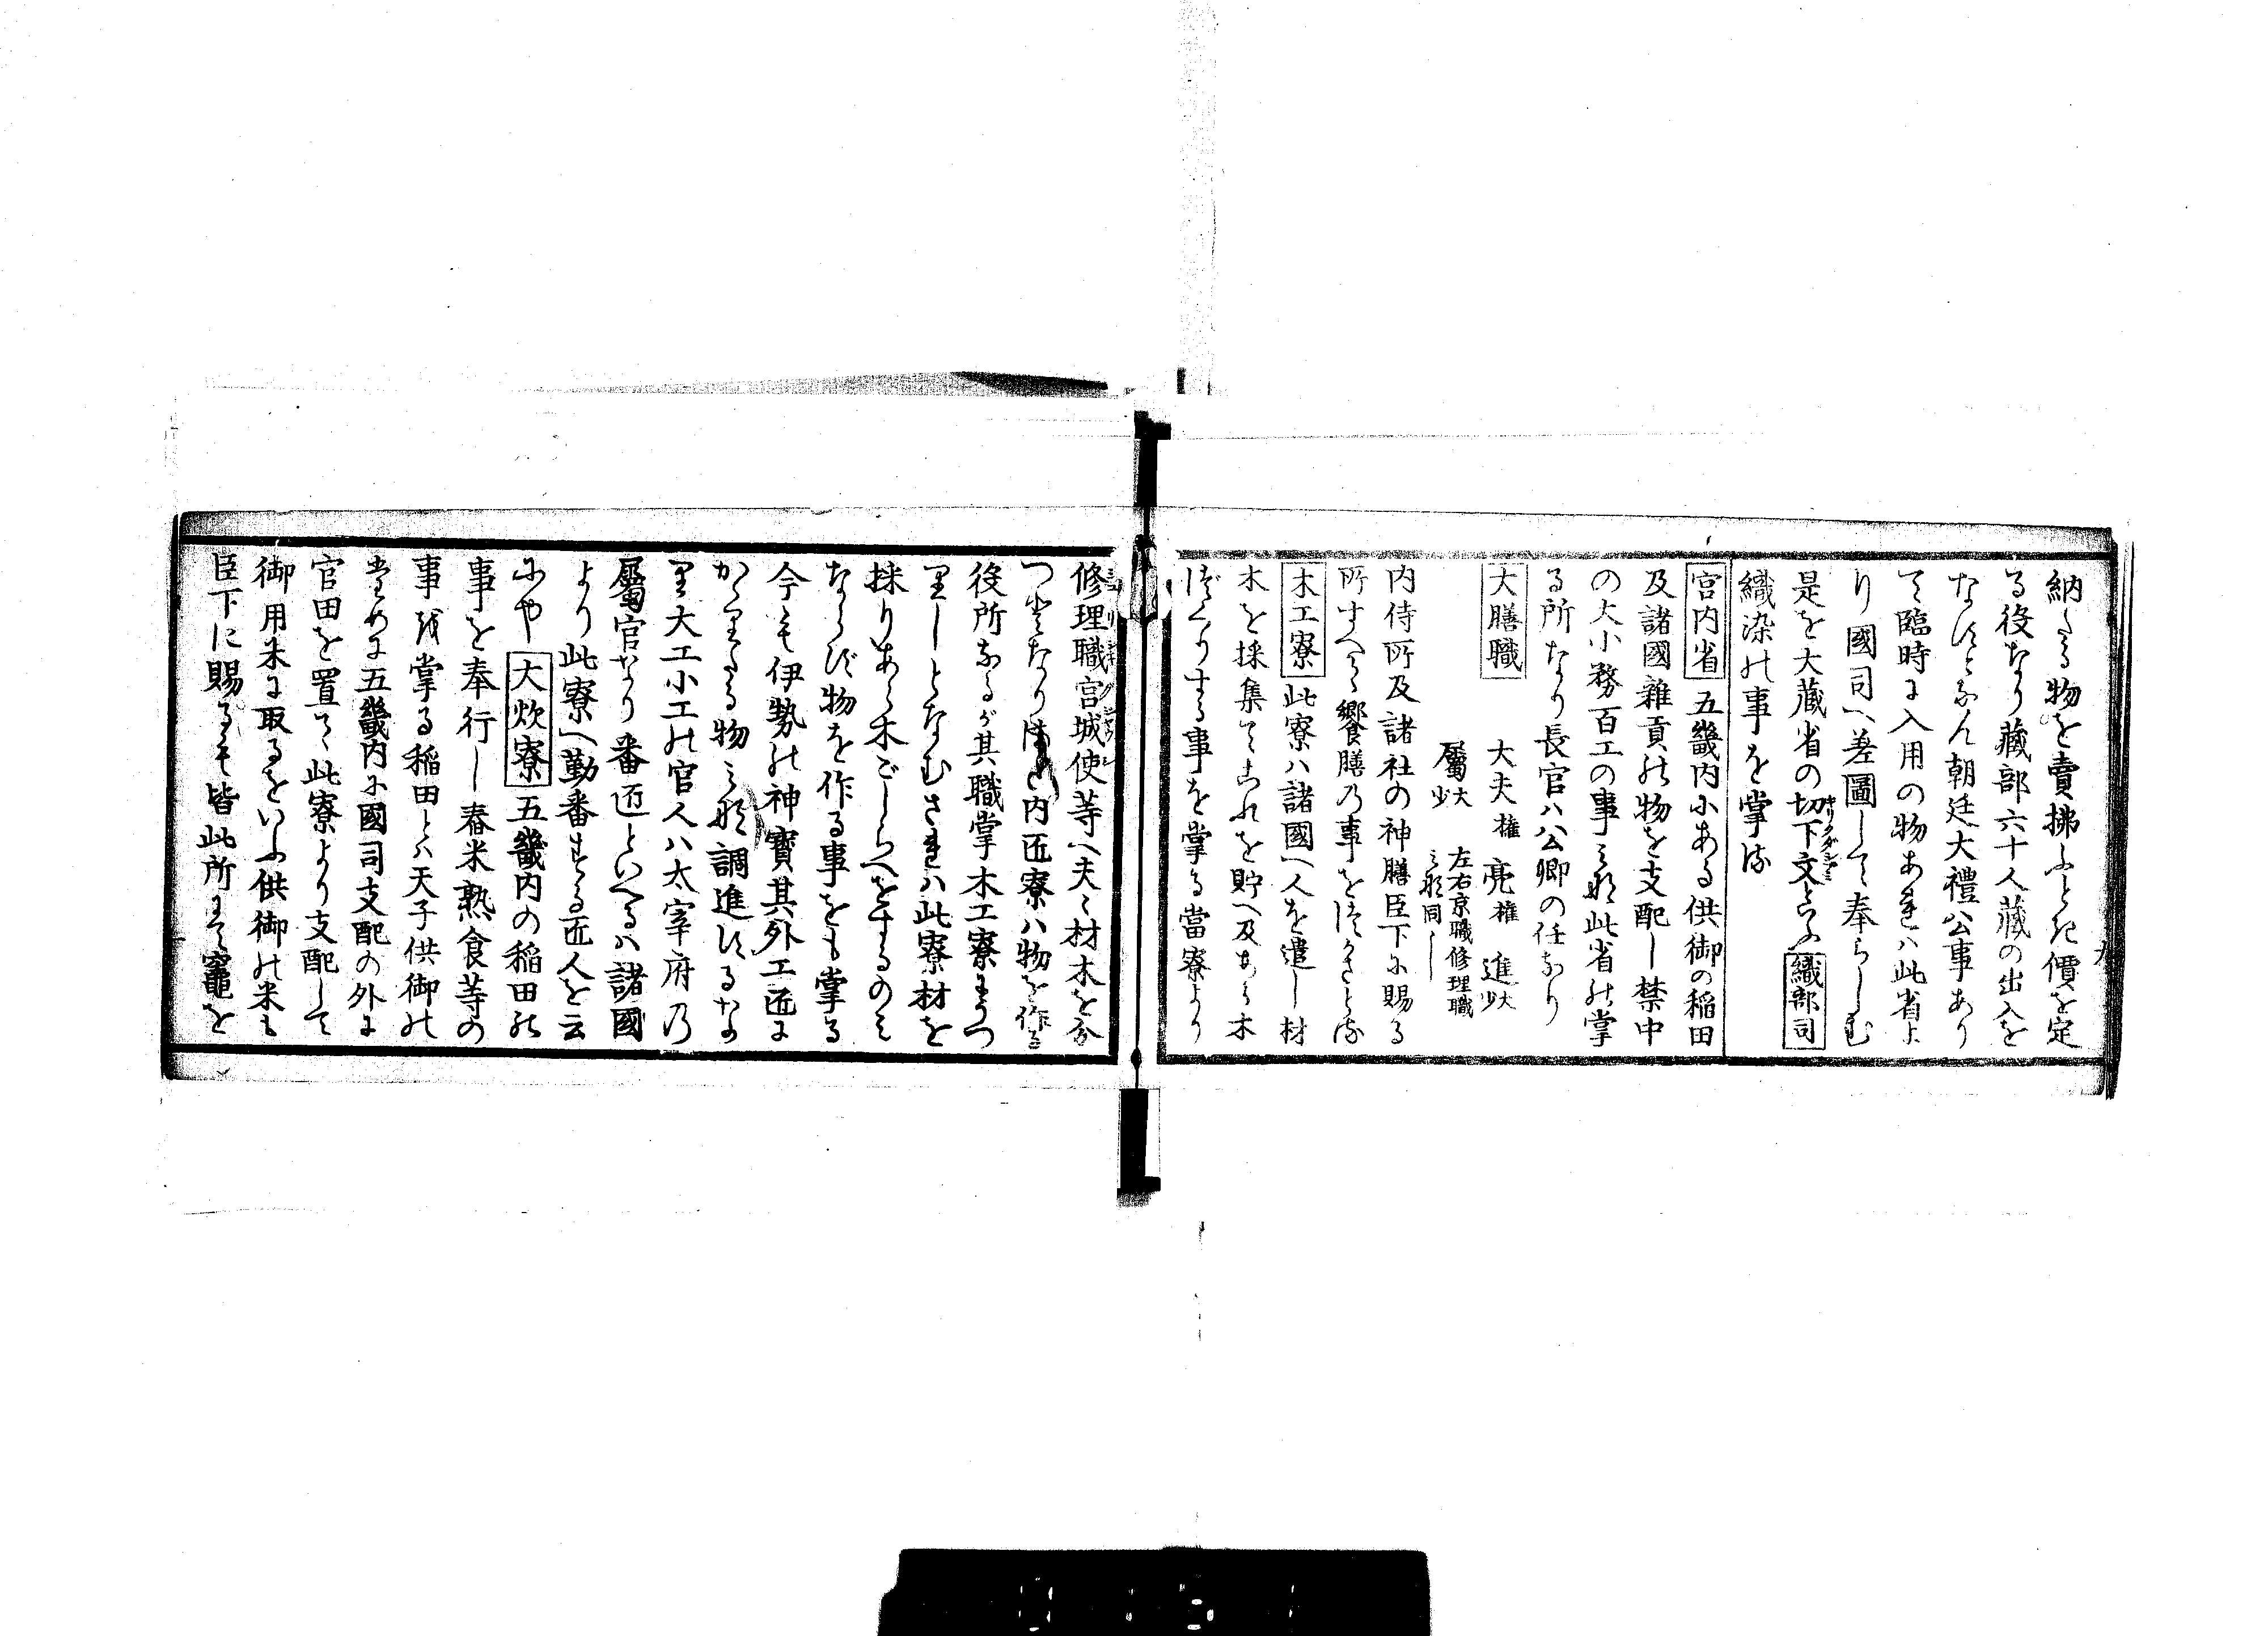 納たる物を賣拂ふとき價を定
る役なり藏部六十人藏の出入を
なすとなん朝廷大禮公事あり
て臨時に入用の物あれハ此省よ
り國司へ差圖して奉らしむ
是を大藏省の切下文といふ 織部司
織染の事を掌る
宮内省 五畿内にある供御の稲田
及諸國雜貢の物を支配し禁中
の大小務百工の事みな此省の掌
る所なり長官ハ公卿の任なり
大膳職 大夫權 亮權 進大少
屬大少 左右京職修理職みな同し
内侍所及諸社の神膳臣下に賜る
所すへて饗膳乃事をつかさとる
木工寮 此寮ハ諸國へ人を遣し材
木を採集てこれを貯へ及あら木
つくりする事を掌る當寮より
修理職宮城使等へ夫々材木を分
つ事なり 内匠寮ハ物を作る
役所なるが其職掌木工寮にうつ
りしとなむされハ此寮材を
採りあら木ごしらへをするのみ
ならず物を作る事をも掌る
今も伊勢の神寶其外工匠に
かゝりたる物みな調進するなり
大工小工の官人ハ太宰府乃
屬官なり番匠といへるハ諸國
より此寮へ勤番する匠人を云
にや 大炊寮 五畿内の稲田の
事を奉行し舂米熟食等の
事を掌る稲田とハ天子供御の
ために五畿内に國司支配の外に
官田を置て此寮より支配して
御用米に取るをいふ供御の米も
臣下に賜るも皆此所にて竈を